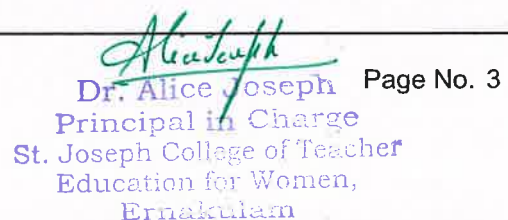 Alice Joseph
Dr. Alice Joseph
Page No. 3
Principal in Charge
St. Joseph College of Teacher
Education for Women,
Ernakulam